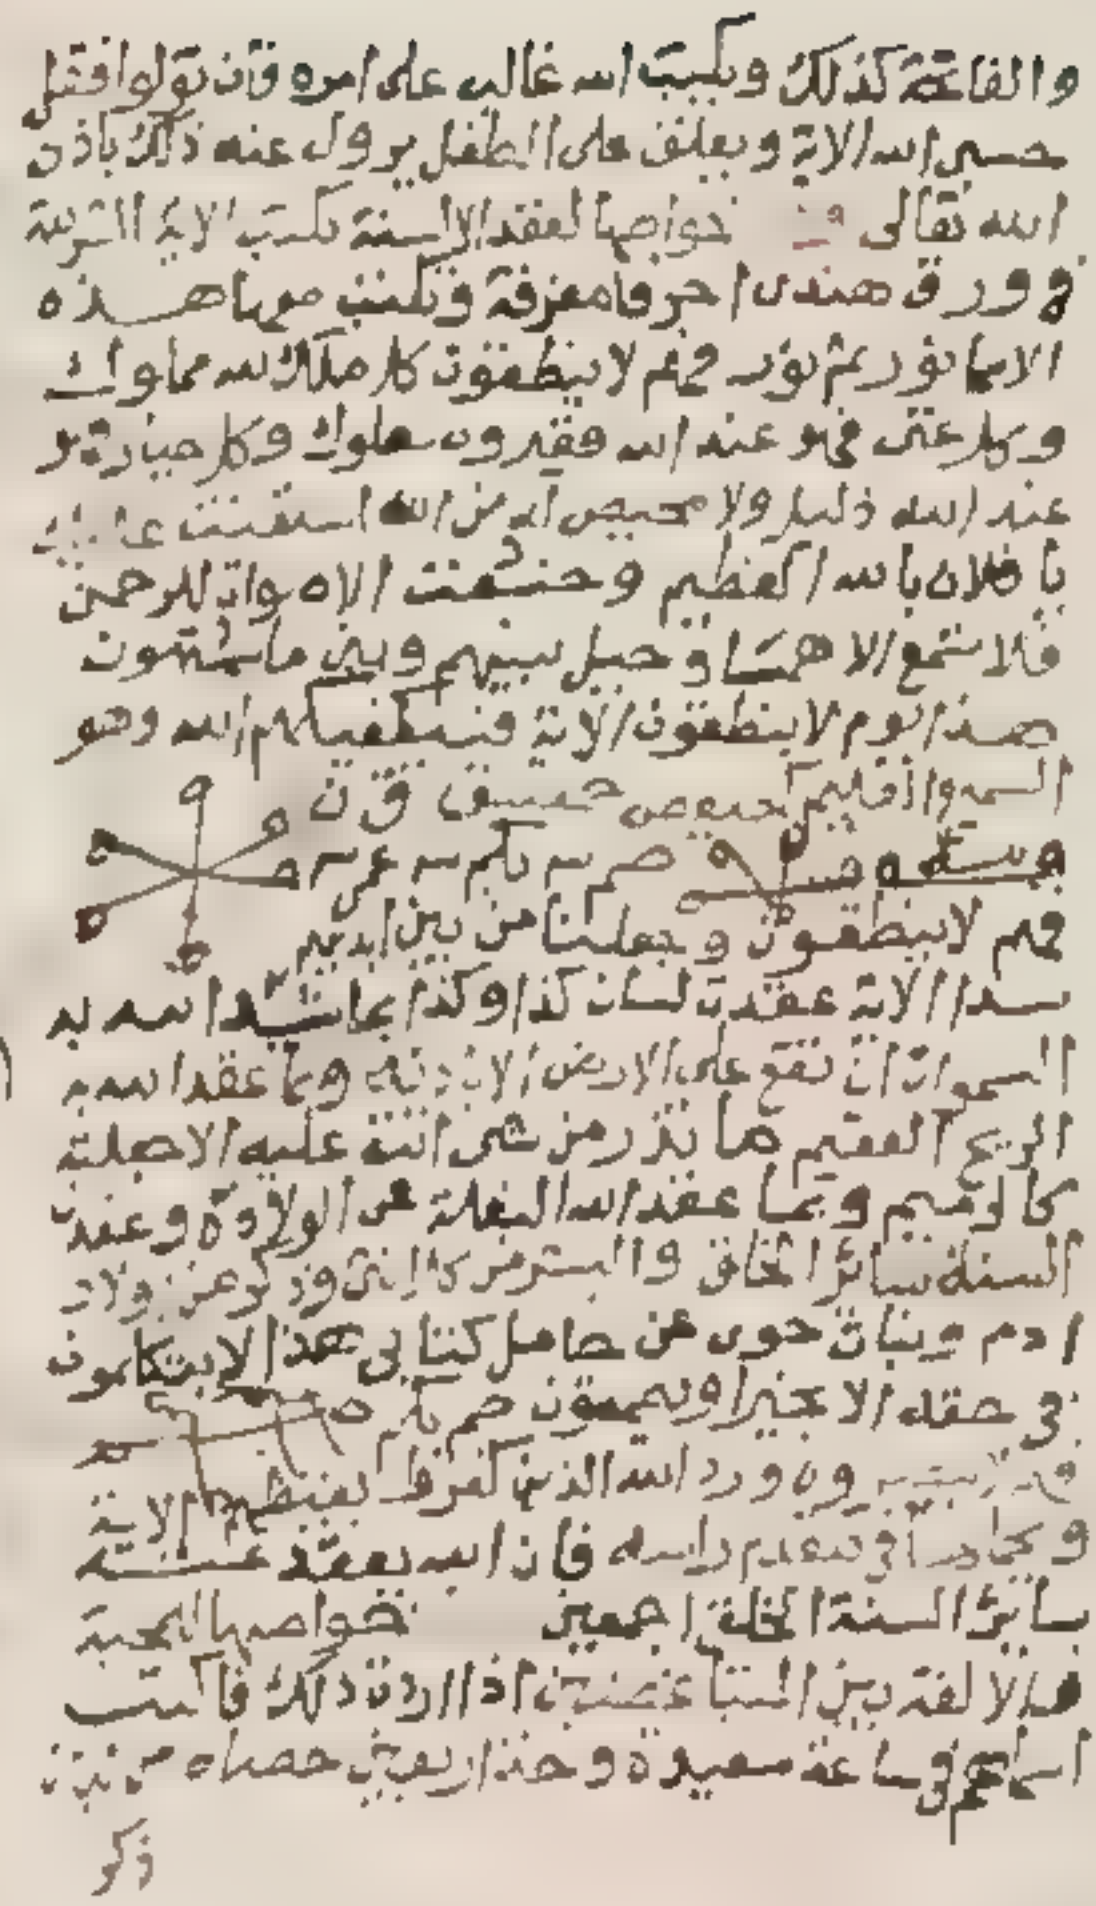 والفاتحة كذلك ويكتب الله غالب على امره فان تولوا فقل
حسبى الله الاية ويعلق على الطفل يزول عنه ذلك باذن
الله تعالى خواصها لعقد الالسنة تكتب الاية الشريفة
فى ورق هندى احرفا مفرقة وتكتب معها هذه
الاسما فهم لا ينطقون كل ملك لله مملوك
وكل غنى فهو عند الله فقير وكل جبار فهو
عند الله ذليل ولا محيص له من الله استعنت عليك
يا فلان بالله العظيم وخشعت الاصوات للرحمن
فلا تسمع الا همسا وحيل بينهم وبين ما يشتهون
هذا يوم لا ينطقون الاية فسيكفيكهم الله وهو
السميع العليم كهيعص حمعسق ق ن
صم بكم عمى
فهم لا ينطقون وجعلنا من بين ايديهم
سدا الاية عقدت لسان كذا وكذا بما شد الله به
السموات ان تقع على الارض الا باذنه وبما عقد الله به
الريح العقيم ما تذر من شى اتت عليه الا جعلته
كالرميم وبما عقد الله البغلة عن الولادة وعقدت
السنة سائر الخلق والبشر من كل انثى وذكر من اولاد
ادم وبنات حوى عن حامل كتابى هذا لا يتكلمون
فى حقه الا بخير او يصمتون صم بكم
ورد الله الذين كفروا بغيظهم الاية
ويجعلها فى مقدم راسه فان الله يعقد عنه
سائر السنة الخلق اجمعين خواصها للمحبة
والالفة بين المتباغضين اذا اردت ذلك فاكتب
اسماهم فى ساعة سعيدة وخذ اربعين حصاه من
ذكر